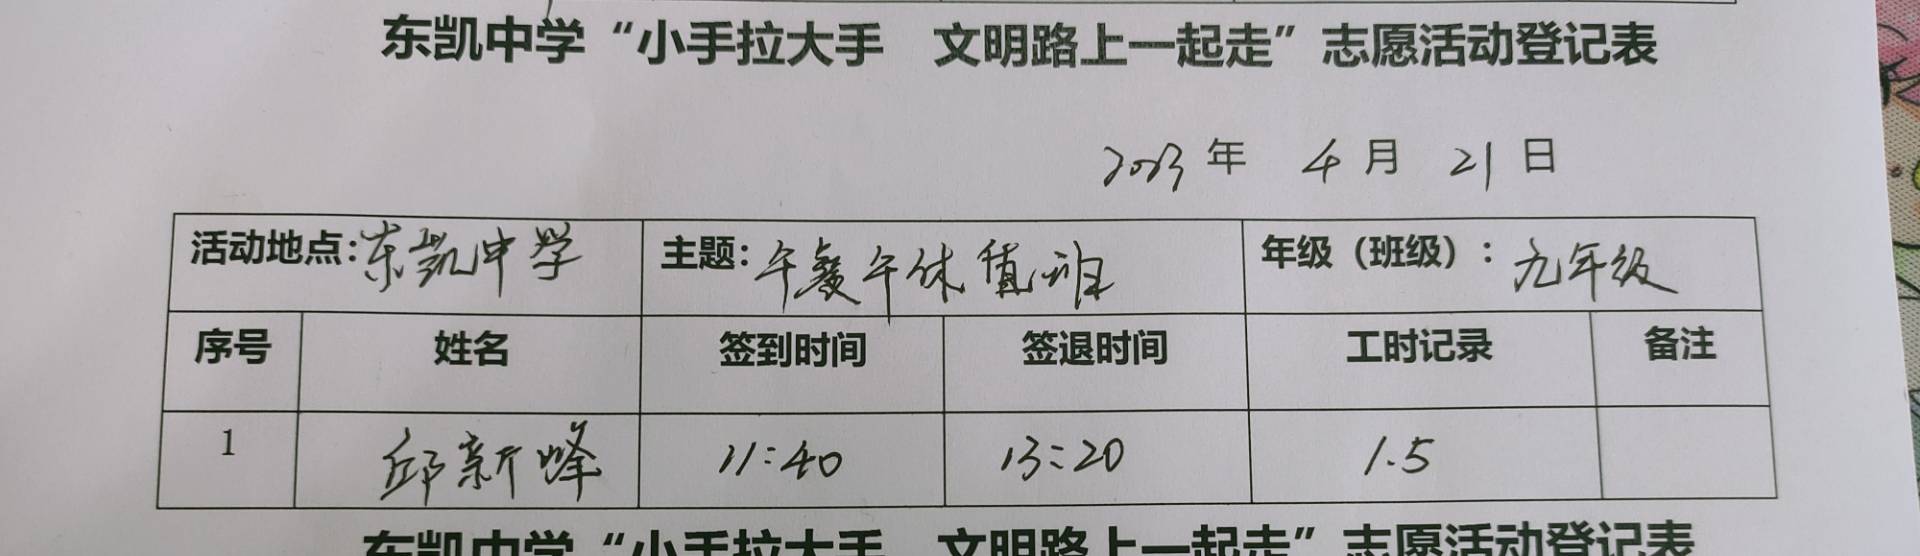 东凯中学“小手拉大手 文明路上一起走”志愿活动登记表
2023年 4月 21日
活动地点:东凯中学 主题:午餐午休值班 年级（班级）:九年级
序号 姓名 签到时间 签退时间 工时记录 备注
1 邱新峰 11:40 13:20 1.5
东凯中学“小手拉大手 文明路上一起走”志愿活动登记表